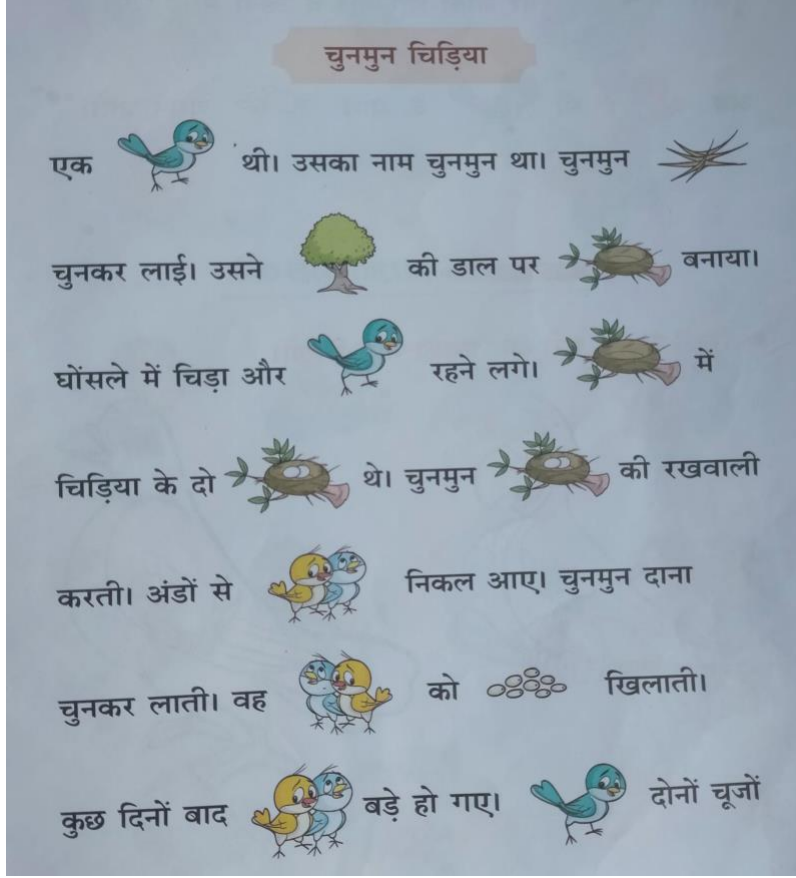 चुनमुन चिड़िया
एक थी। उसका नाम चुनमुन था। चुनमुन
चुनकर लाई। उसने की डाल पर बनाया।
घोंसले में चिड़ा और रहने लगे। में
चिड़िया के दो थे। चुनमुन की रखवाली
करती। अंडों से निकल आए। चुनमुन दाना
चुनकर लाती। वह को खिलाती।
कुछ दिनों बाद बड़े हो गए। दोनों चूजों